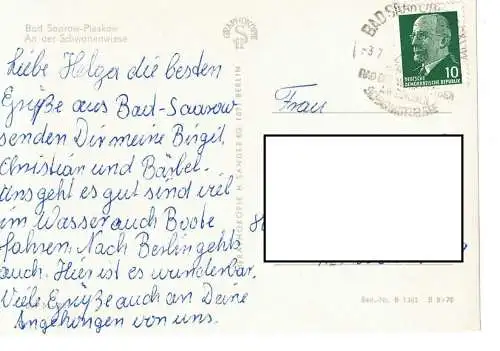 Bad Saarow-Pieskow
An der Schwanenwiese
Liebe Helga die besten
Grüße aus Bad-Saarow
senden Dir meine Birgit,
Christian und Bärbel.
Uns geht es gut sind viel
im Wasser auch Boote
fahren. Nach Berlin gehts
auch. Hier ist es wunderbar.
Viele Grüße auch an Deine
Angehörigen von uns.
GRAPHOKOPIE H. SANDER KG · 1071 BERLIN
BAD SAAROW
DEUTSCHE
DEMOKRATISCHE REPUBLIK
10
Frau
Best.-Nr. B 1361 B 8/70